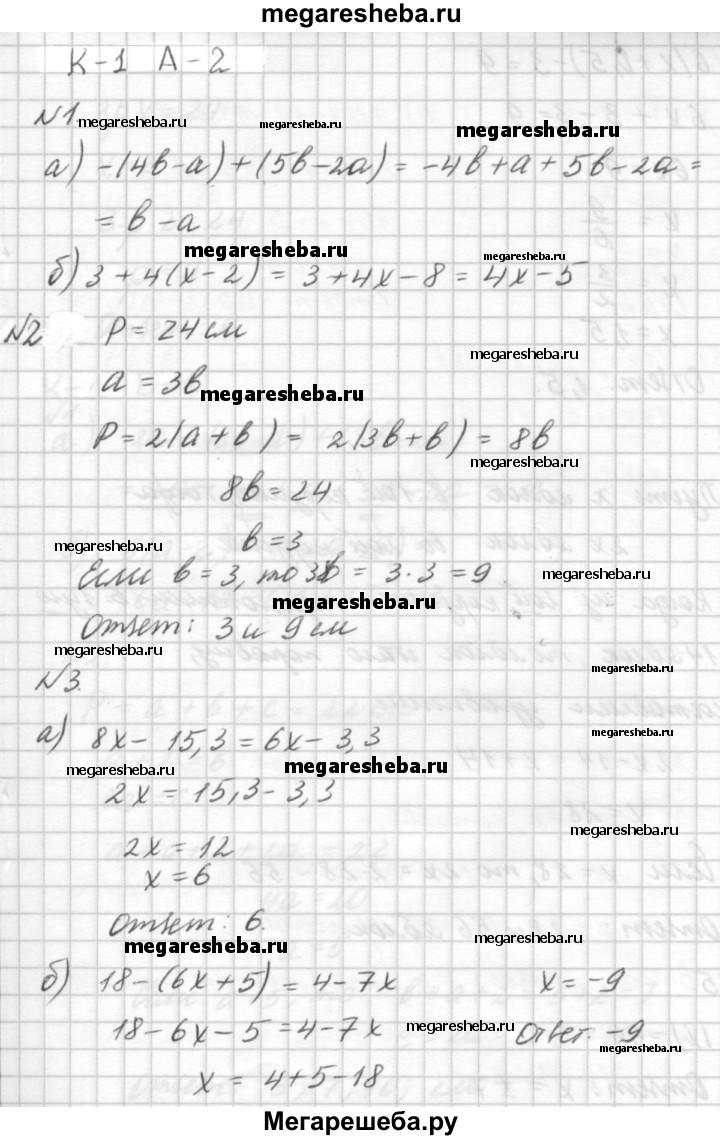 megaresheba.ru
К-1 А-2
№1 megaresheba.ru megaresheba.ru megaresheba.ru
а) -(4в-а)+(5в-2а) = -4в+а+5в-2а =
= в-а
megaresheba.ru megaresheba.ru
б) 3+4(х-2) = 3+4х-8 = 4х-5
№2 Р = 24 см
megaresheba.ru
а = 3в
megaresheba.ru
Р = 2(а+в) = 2(3в+в) = 8в
megaresheba.ru
8в = 24
в = 3
megaresheba.ru
Если в = 3, то 3в = 3·3 = 9
megaresheba.ru
megaresheba.ru
Ответ: 3 и 9 см
megaresheba.ru
megaresheba.ru
№3.
а) 8х - 15,3 = 6х - 3,3
megaresheba.ru
megaresheba.ru megaresheba.ru
2х = 15,3 - 3,3
megaresheba.ru
2х = 12
х = 6
Ответ: 6.
megaresheba.ru megaresheba.ru
б) 18-(6х+5) = 4-7х х = -9
18-6х-5 = 4-7х megaresheba.ru Ответ: -9
megaresheba.ru
х = 4+5-18
Мегарешеба.ру